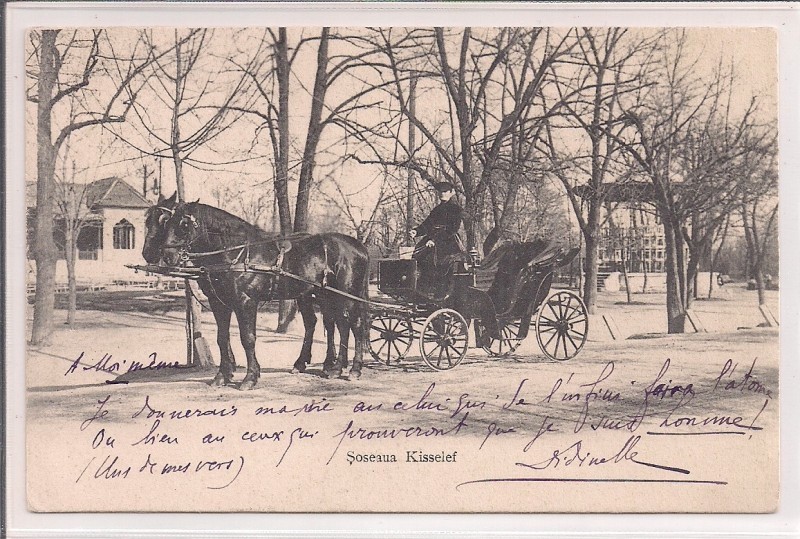 A Moi même
Je donnerais ma vie au celui qui de l'infini fera l'atome
Ou bien au ceux qui prouveront que je suis homme!
(Uns de mes vers)
Didinelle
Șoseaua Kisselef